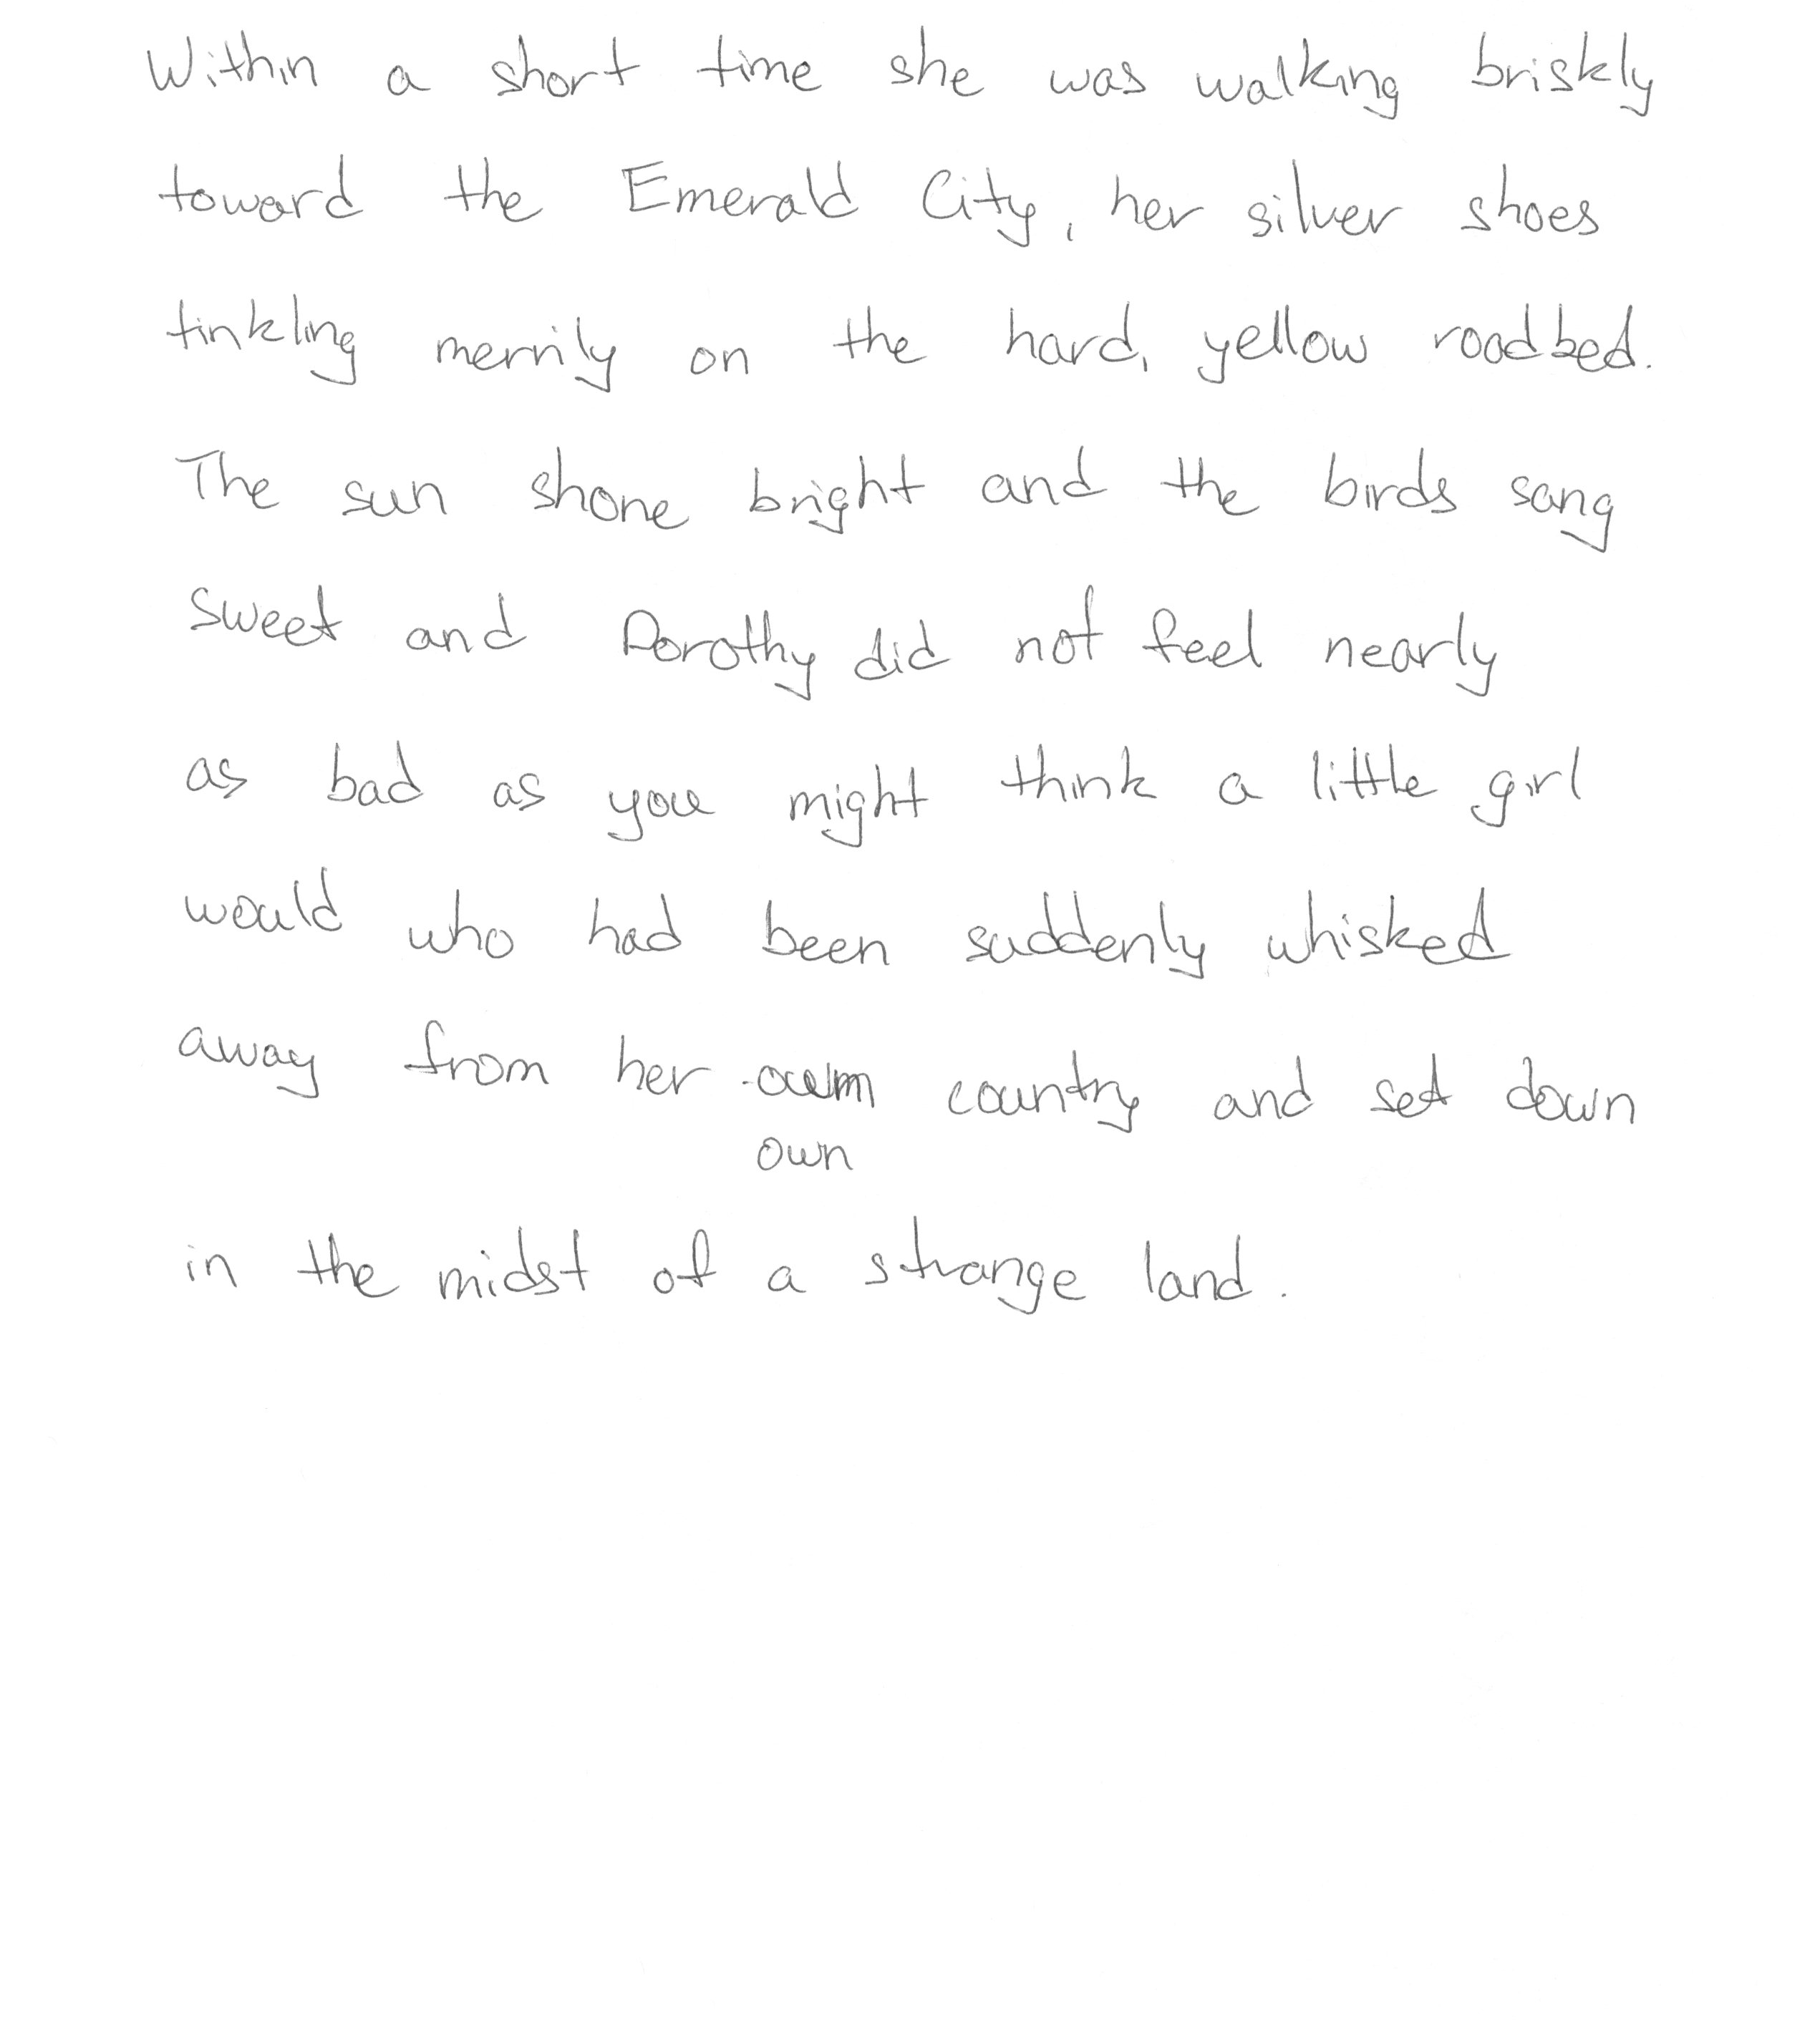 Within a short time she was walking briskly
toward the Emerald City, her silver shoes
tinkling merrily on the hard, yellow roadbed.
The sun shone bright and the birds sang
sweet and Dorothy did not feel nearly
as bad as you might think a little girl
would who had been suddenly whisked
away from her country and set down
own
in the midst of a strange land.